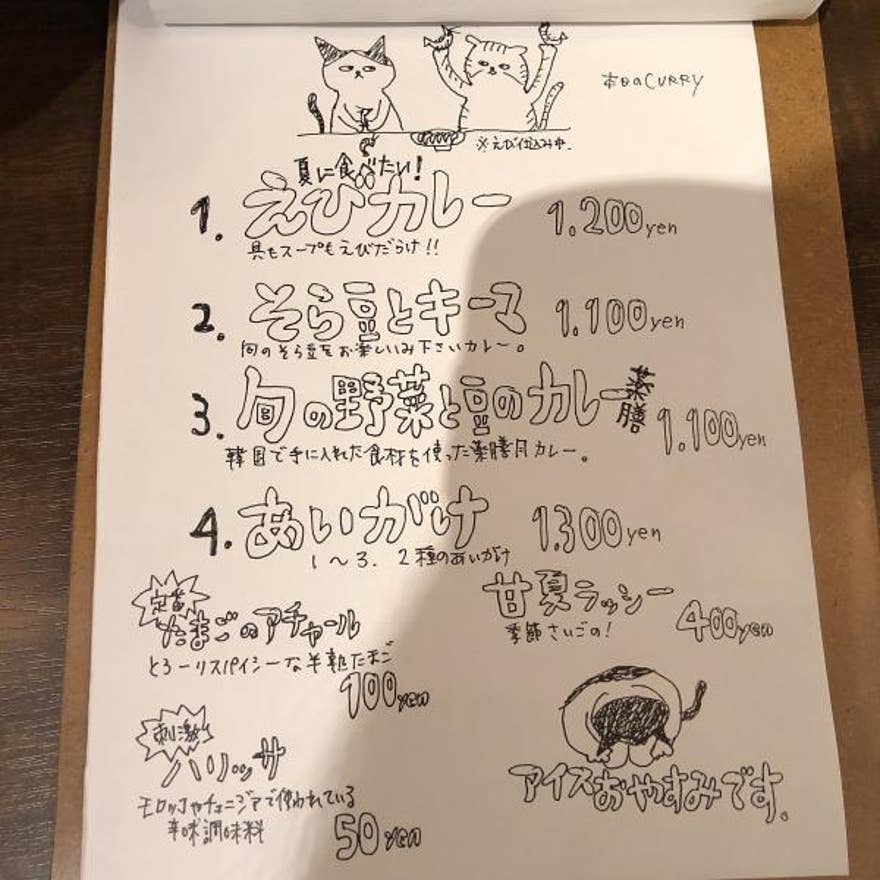 本日のCURRY
※えび仕込み中.
夏に食べたい!
1. えびカレー 1.200yen
具もスープもえびだらけ!!
2. そら豆とキーマ 1.100yen
旬のそら豆をお楽しいみ下さいカレー。
3. 旬の野菜と豆のカレー 薬膳 1.100yen
韓国で手に入れた食材を使った薬膳カレー。
4. あいがけ 1.300yen
1〜3. 2種のあいがけ
定番
たまごのアチャール
とろーりスパイシーな半熟たまご
100yen
甘夏ラッシー
季節さいごの!
400yen
刺激
ハリッサ
モロッコやチュニジアで使われている
辛味調味料
50yen
アイスおやすみです.